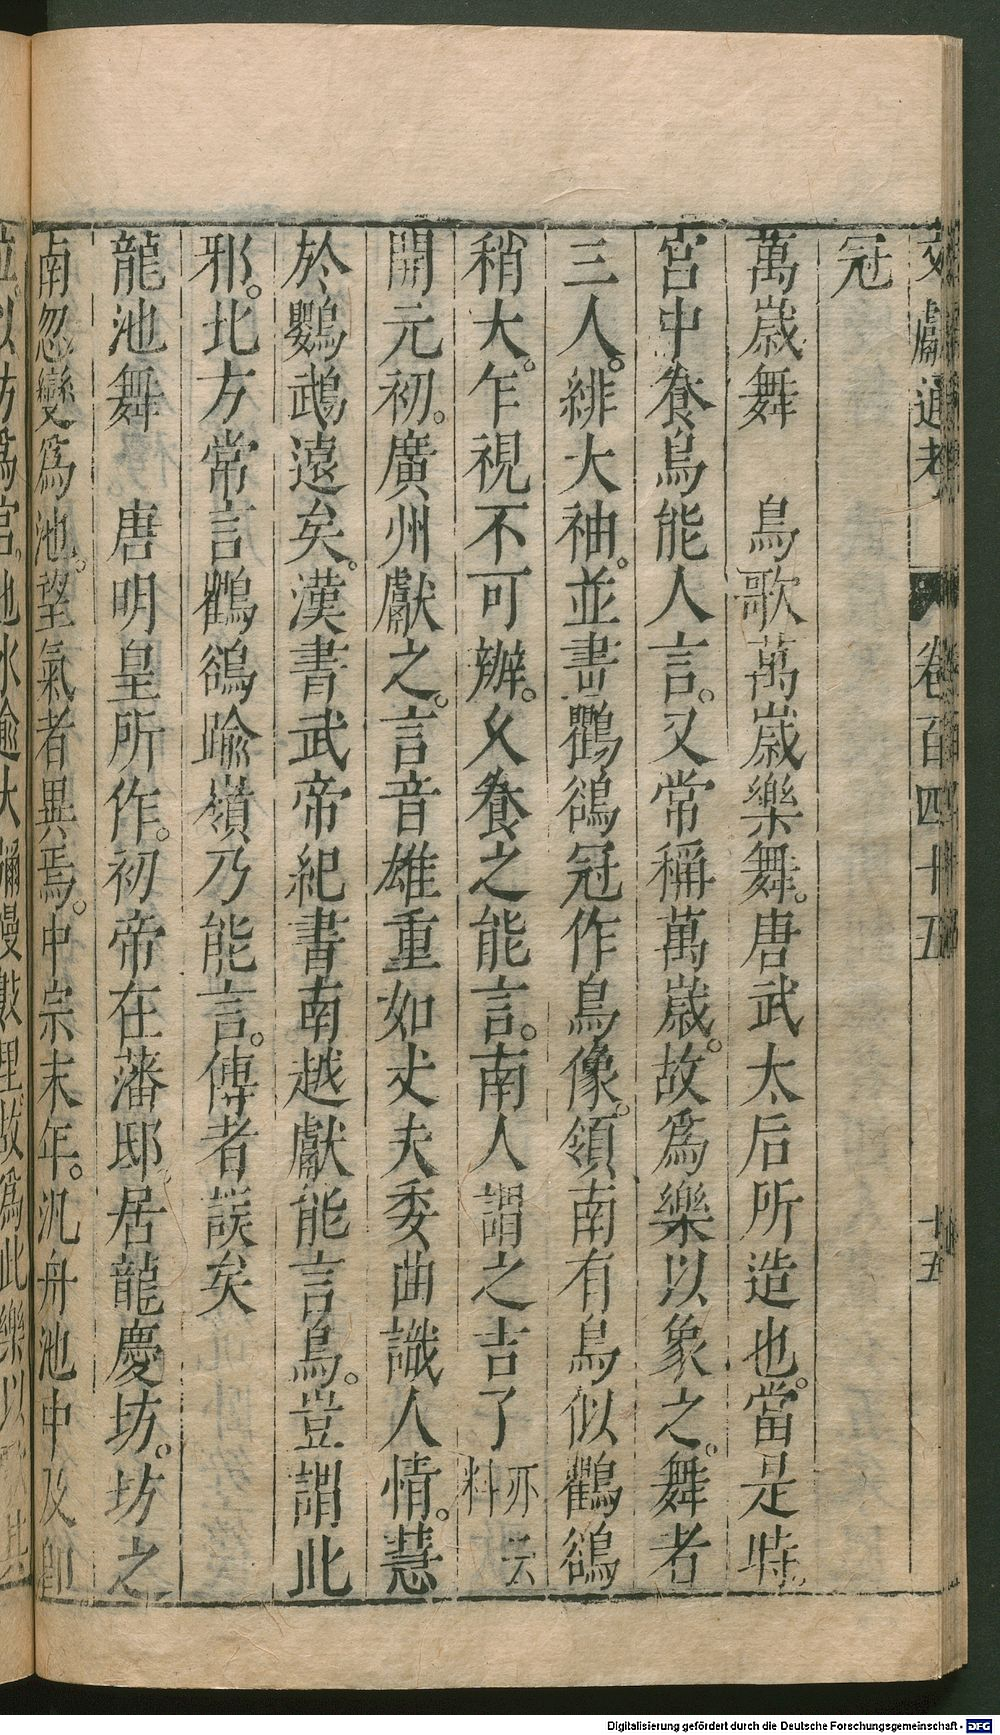 文獻通考 卷百四十五 十五
冠
萬歲舞 鳥歌萬歲樂舞。唐武太后所造也。當是時
宮中養鳥能人言。又常稱萬歲。故爲樂以象之。舞者
三人。緋大袖。並畫鸜鵒冠作鳥像。領南有鳥似鸜鵒
稍大。乍視不可辦。久養之能言。南人謂之吉了亦云料
開元初。廣州獻之。言音雄重如丈夫委曲識人情。慧
於鸚鵡遠矣。漢書武帝紀書南越獻能言鳥。豈謂此
邪。北方常言鸜鵒踰嶺乃能言。傳者誤矣
龍池舞 唐明皇所作。初帝在藩邸。居龍慶坊。坊之
南忽變爲池。望氣者異焉。中宗末年。汎舟池中及卽
位。以坊爲宮。池水逾大瀰漫數里。故爲此樂以歌其
Digitalisierung gefördert durch die Deutsche Forschungsgemeinschaft - DFG